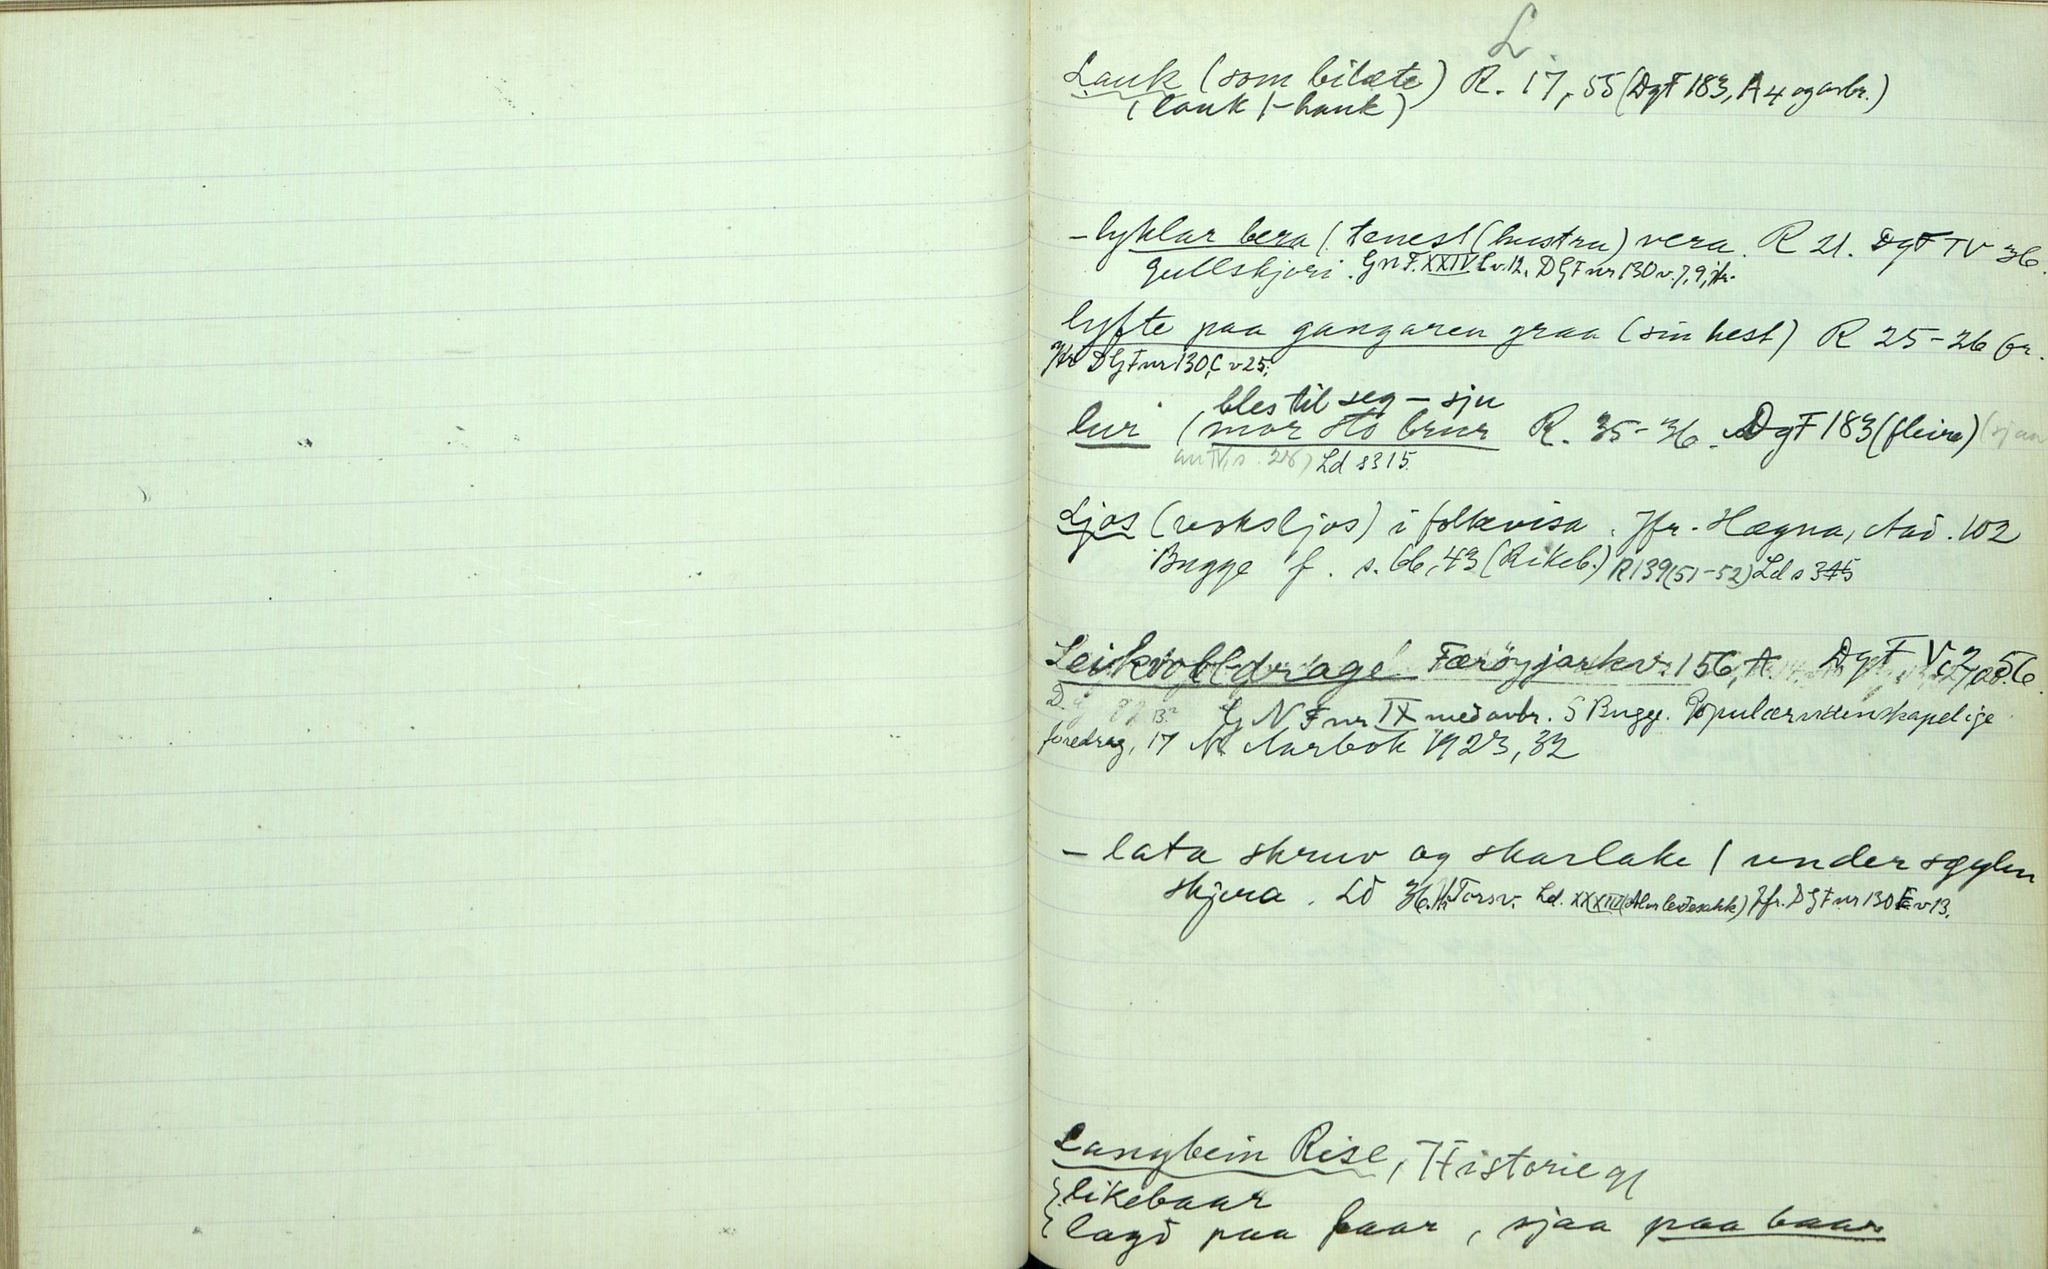 L
Lauk (som bilæte) R. 17, 55 (DgF 183, A 4 og avbr.)
(lauk /- hauk)
- lyklar bera / tenest (hustru) vera. R 21. DgF IV 36.
gullskjori. GNF. XXIV b v. 12. DGF nr 130 v. 7, 9, jfr.
lyfte paa gangaren graa (sin hest) R 25-26 fr.
Jfr DGF nr 130, C v 25.
bles til seg - sju
lur (mor sto brur R. 35-36. DgF 183 (fleire) (sjaa
Ld s 315.
Ljos (voksljos) i folkevisa. Jfr. Hægna, Aad. 102
Bugge f. s. 66, 43 (Rikeb.) R 139 (51-52) Ld s 345
Leikvoll-drage Færøyjarkv. 156, A. DgF V
GNF nr IX med avbr. S Bugge. Populærvidenskapelige
foredrag, 17 N Aarbok 1923, 32
- lata skruv og skarlake / under sgylen
skjera. Ld 36. Torsv. Ld. XXXIII Jfr. DGF nr 130 E v 13.
Langbein Rise, Historie
{ likebaar
{ lagd paa baar, sjaa paa baar